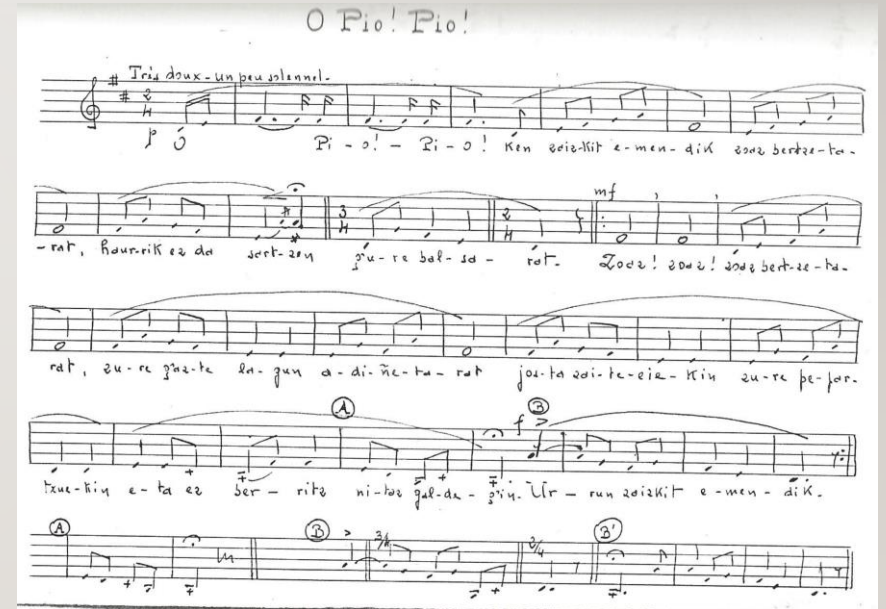 O Pio! Pio!
Très doux - un peu solennel.
2/4
p Ó Pi - o! - Pi - o! Ken zaizkit e - men - dik zoaz bertze - ta -
mf
3/4 2/4
- rat, haur-rik ez da sort - zen gu - re bal - sa - rat. Zoaz! zoaz! zoaz bert - ze - ta -
rat, zu - re gaz - te la - gun a - di - ñe - ta - rat jos - ta zai - te - eie - kin zu - re pe - par -
A B
f
txue - kin e - ta ez ber - ritz ni - taz gal - de - gin. Ur - run zaizkit e - men - dik.
A B 3/4 2/4 B'